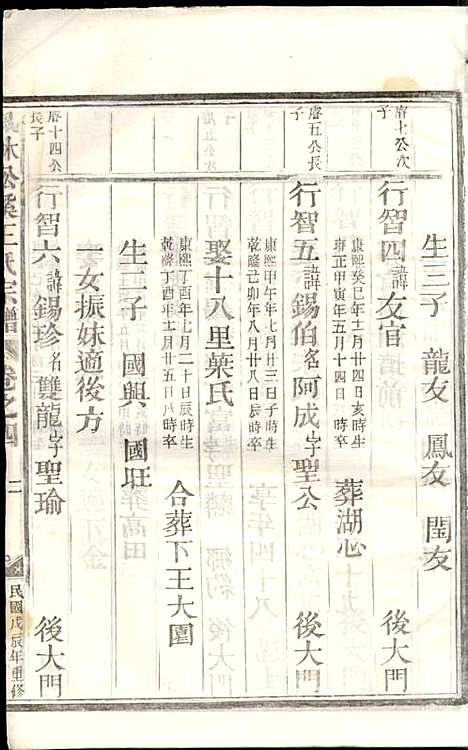 生三子 龍友 鳳友 閏友
睿七公次子
行智四諱友官 後大門
康熙癸巳年十二月廿四日亥時生
雍正甲寅年五月十四日 時卒
葬湖心
睿五公長子
行智五諱錫伯名阿成字聖公 後大門
康熙甲午年七月廿三日子時生
乾隆己卯年八月廿八日辰時卒
娶十八里葉氏
康熙丁酉年七月二十日辰時生
乾隆丁酉年十二月廿五日戌時卒
合葬下王大園
生二子 國興 國班
一女振妹適後方
睿十四公長子
行智六諱錫珍名雙龍字聖瑜 後大門
林松溪王氏宗譜 卷之四 二 民國戊辰年重修